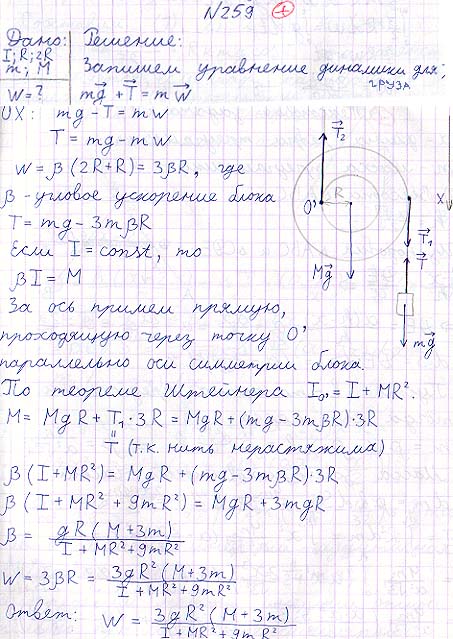 N259 +
Дано: Решение:
I; R; 2R
m; M
Запишем уравнение динамики для
груза
W = ?
mg⃗ + T⃗ = mw⃗
OX: mg - T = mw
T = mg - mw
w = β (2R+R) = 3βR, где
β - угловое ускорение блока
T = mg - 3mβR
Если I = const, то
βI = M
За ось примем прямую,
проходящую через точку O'
параллельно оси симметрии блока.
По теореме Штейнера I₀, = I + MR².
M = MgR + T₁·3R = MgR + (mg - 3mβR)·3R
"
T (т.к. нить нерастяжима)
β (I + MR²) = MgR + (mg - 3mβR)·3R
β (I + MR² + 9mR²) = MgR + 3mgR
β = gR (M + 3m) / I + MR² + 9mR²
W = 3βR = 3gR² (M + 3m) / I + MR² + 9mR²
Ответ: W = 3gR² (M + 3m) / I + MR² + 9mR²
T⃗₂
R
O'
X
T⃗₁
T⃗
Mg⃗
mg⃗